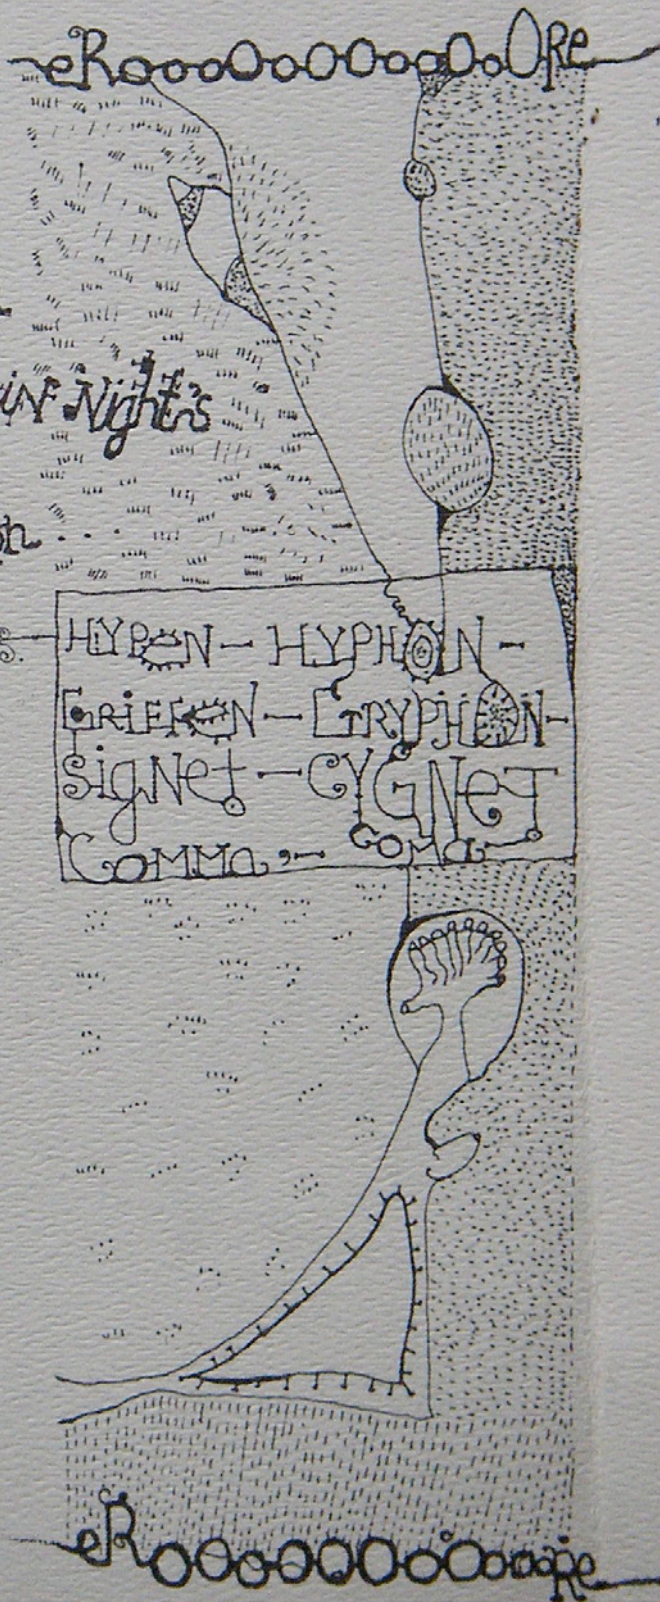 eRoooOoOOoooOoORe
Night's
HYPON - HYPHON -
GRIFFON - GRYPHON -
SigNet - CYGNeT
COMMa, - COMa